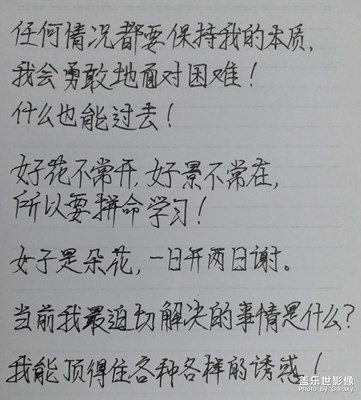 任何情况都要保持我的本质,
我会勇敢地面对困难！
什么也能过去！
好花不常开,好景不常在,
所以要拼命学习！
女子是朵花,一日开两日谢。
当前我最迫切解决的事情是什么？
我能顶得住各种各样的诱惑！
盖乐世影像
Photo by Galaxy